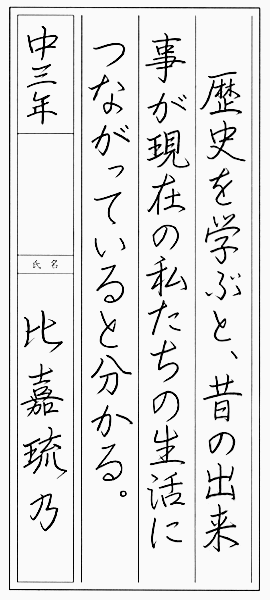 歴史を学ぶと、昔の出来
事が現在の私たちの生活に
つながっていると分かる。
中三年
氏名
比嘉琉乃